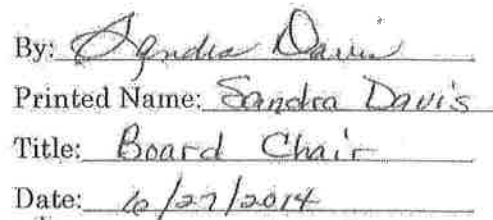 By: Sandra Davis
Printed Name: Sandra Davis
Title: Board Chair
Date: 6/27/2014